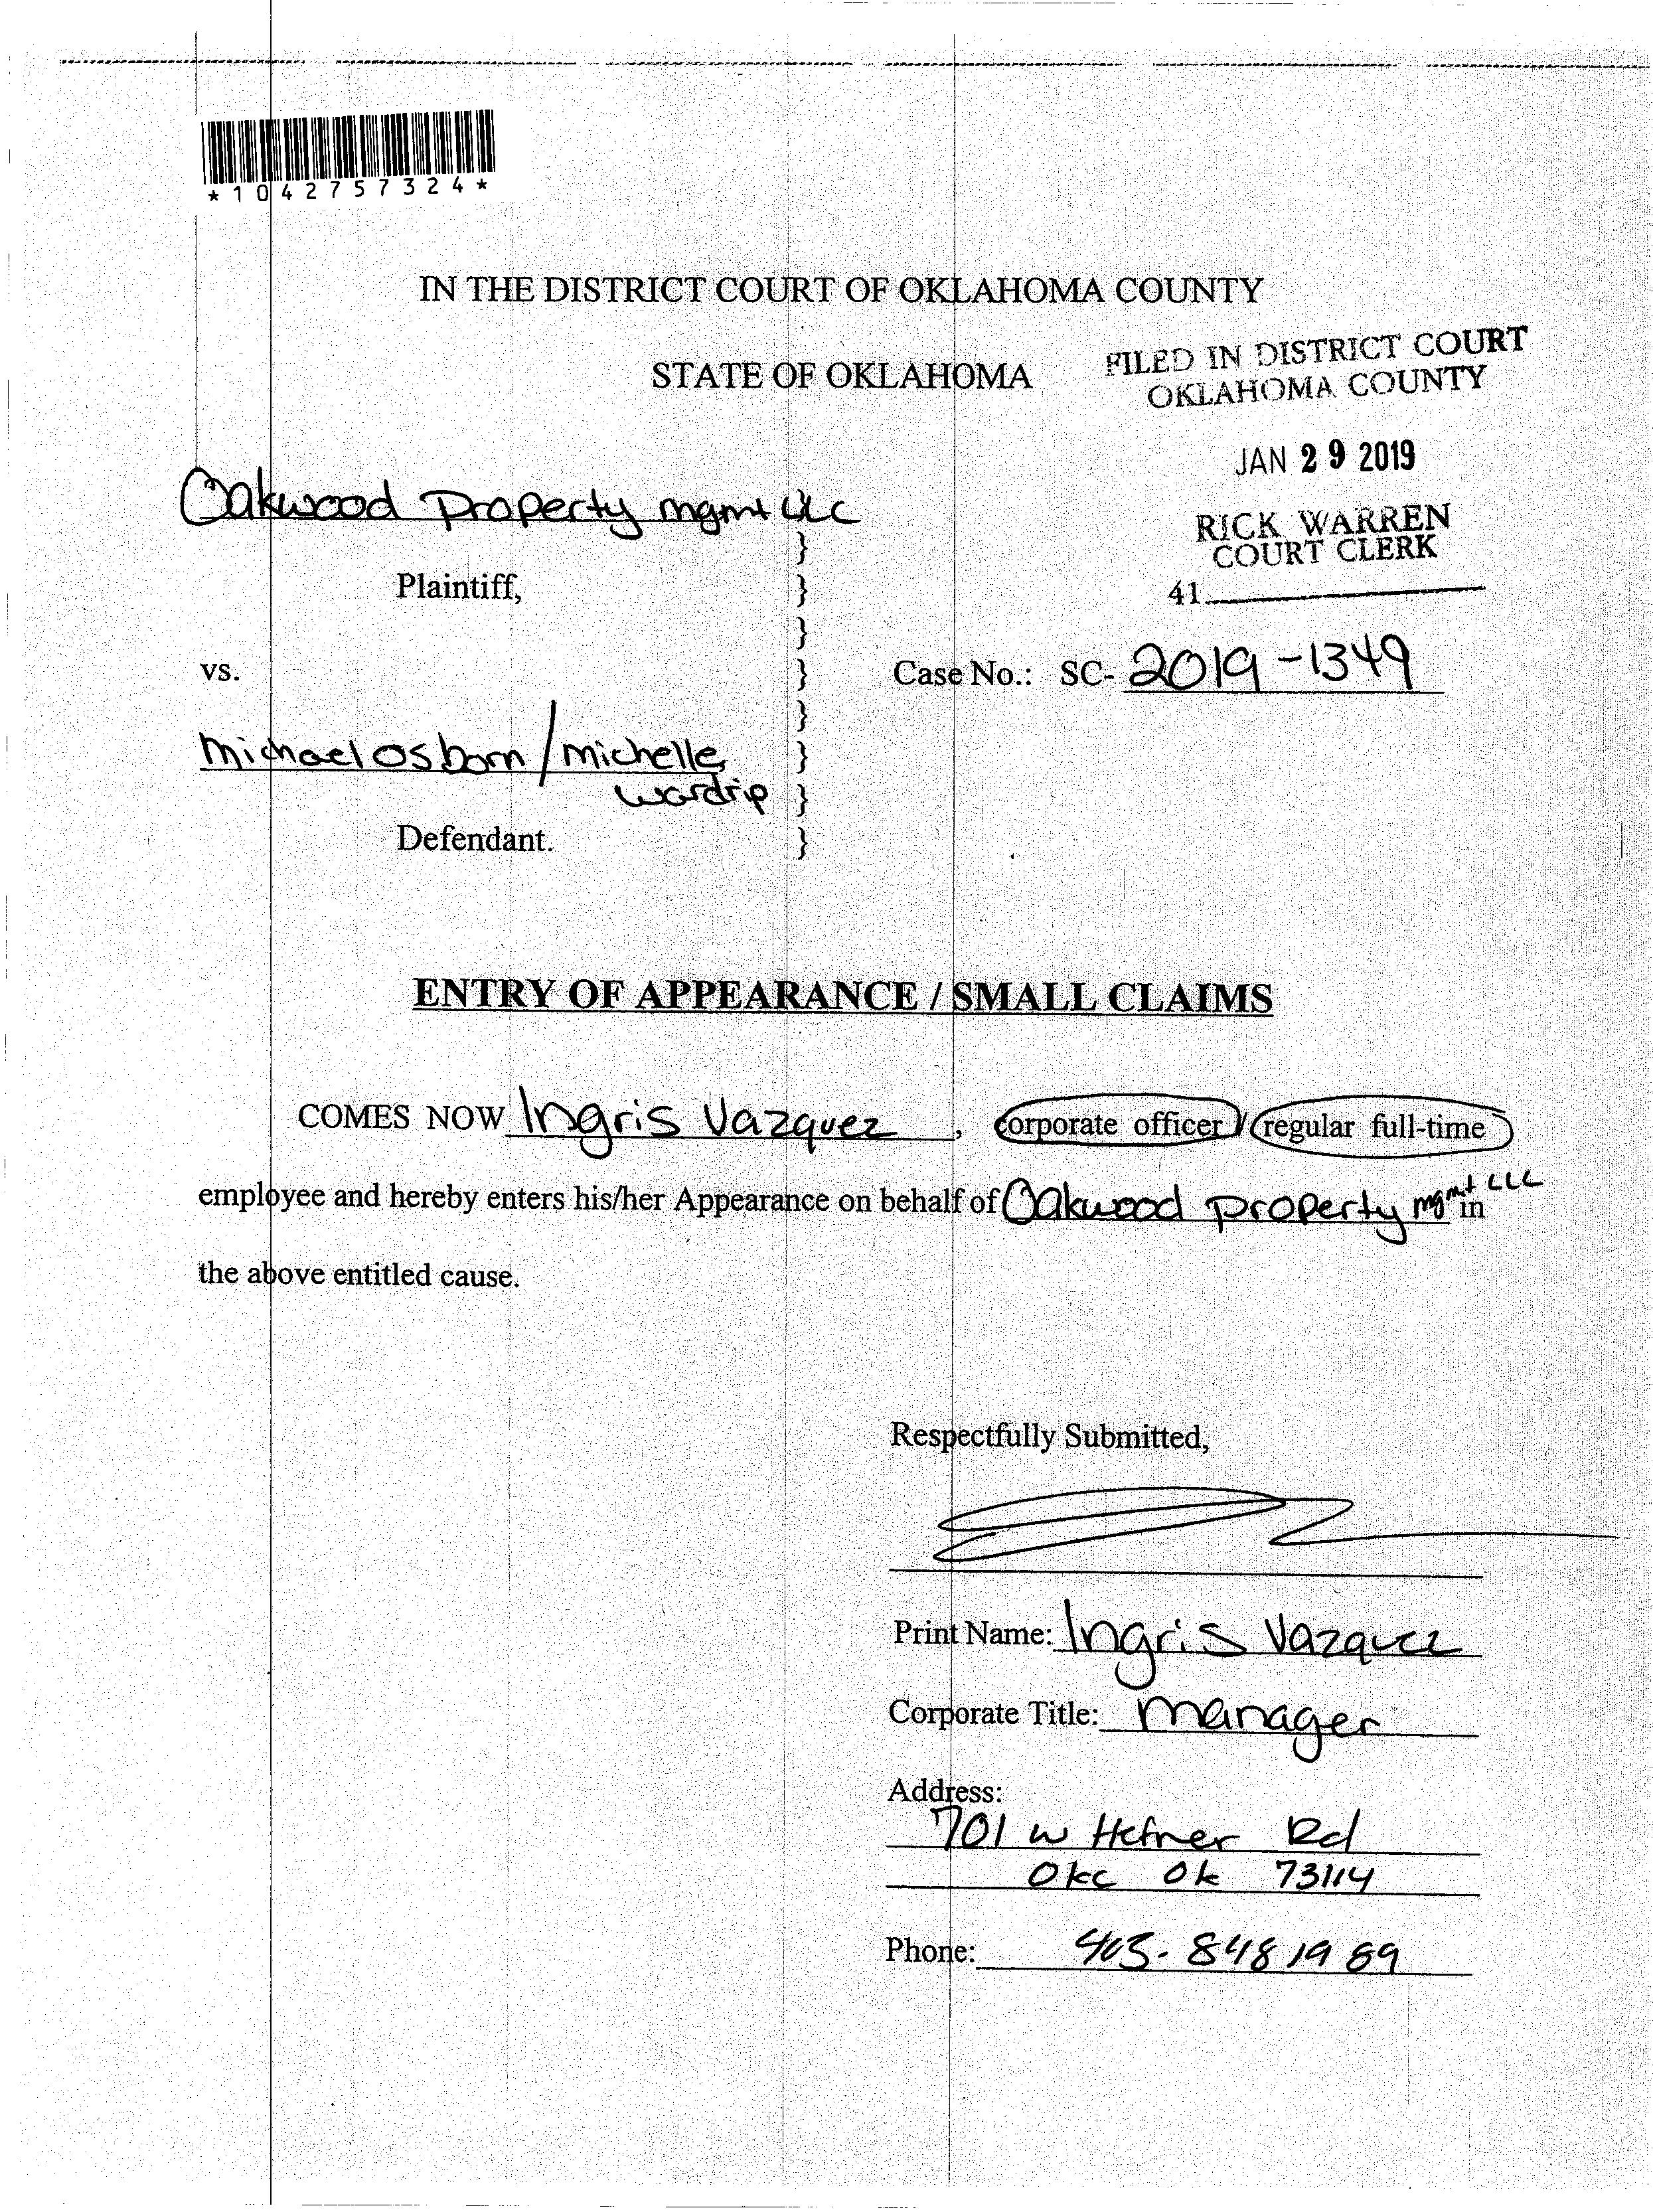 *1042757324*
IN THE DISTRICT COURT OF OKLAHOMA COUNTY
STATE OF OKLAHOMA
FILED IN DISTRICT COURT
OKLAHOMA COUNTY
JAN 29 2019
RICK WARREN
COURT CLERK
41
Oakwood Property mgmt LLC
}
Plaintiff, }
}
vs. } Case No.: SC- 2019-1349
}
Michael Osborn / michelle }
wardrip }
Defendant. }
ENTRY OF APPEARANCE / SMALL CLAIMS
COMES NOW Ingris Vazquez, corporate officer / regular full-time
employee and hereby enters his/her Appearance on behalf of Oakwood property mgmt LLC in
the above entitled cause.
Respectfully Submitted,
Print Name: Ingris Vazquez
Corporate Title: manager
Address:
701 w Hefner Rd
Okc Ok 73114
Phone: 405-848 1989